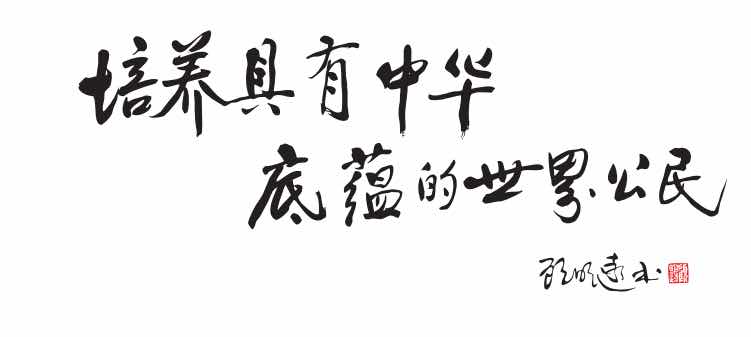 培养具有中华
底蕴的世界公民
顾明远书